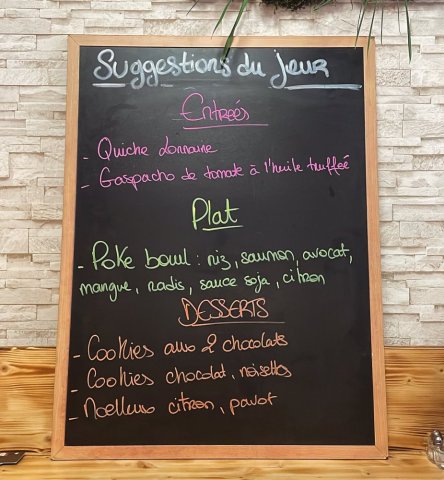 Suggestions du jour
Entrées
- Quiche Lorraine
- Gaspacho de tomate à l'huile truffée
Plat
- Poke bowl : riz, saumon, avocat,
mangue, radis, sauce soja, citron
DESSERTS
- Cookies aux 2 chocolats
- Cookies chocolat, noisettes
- Moelleux citron, pavot